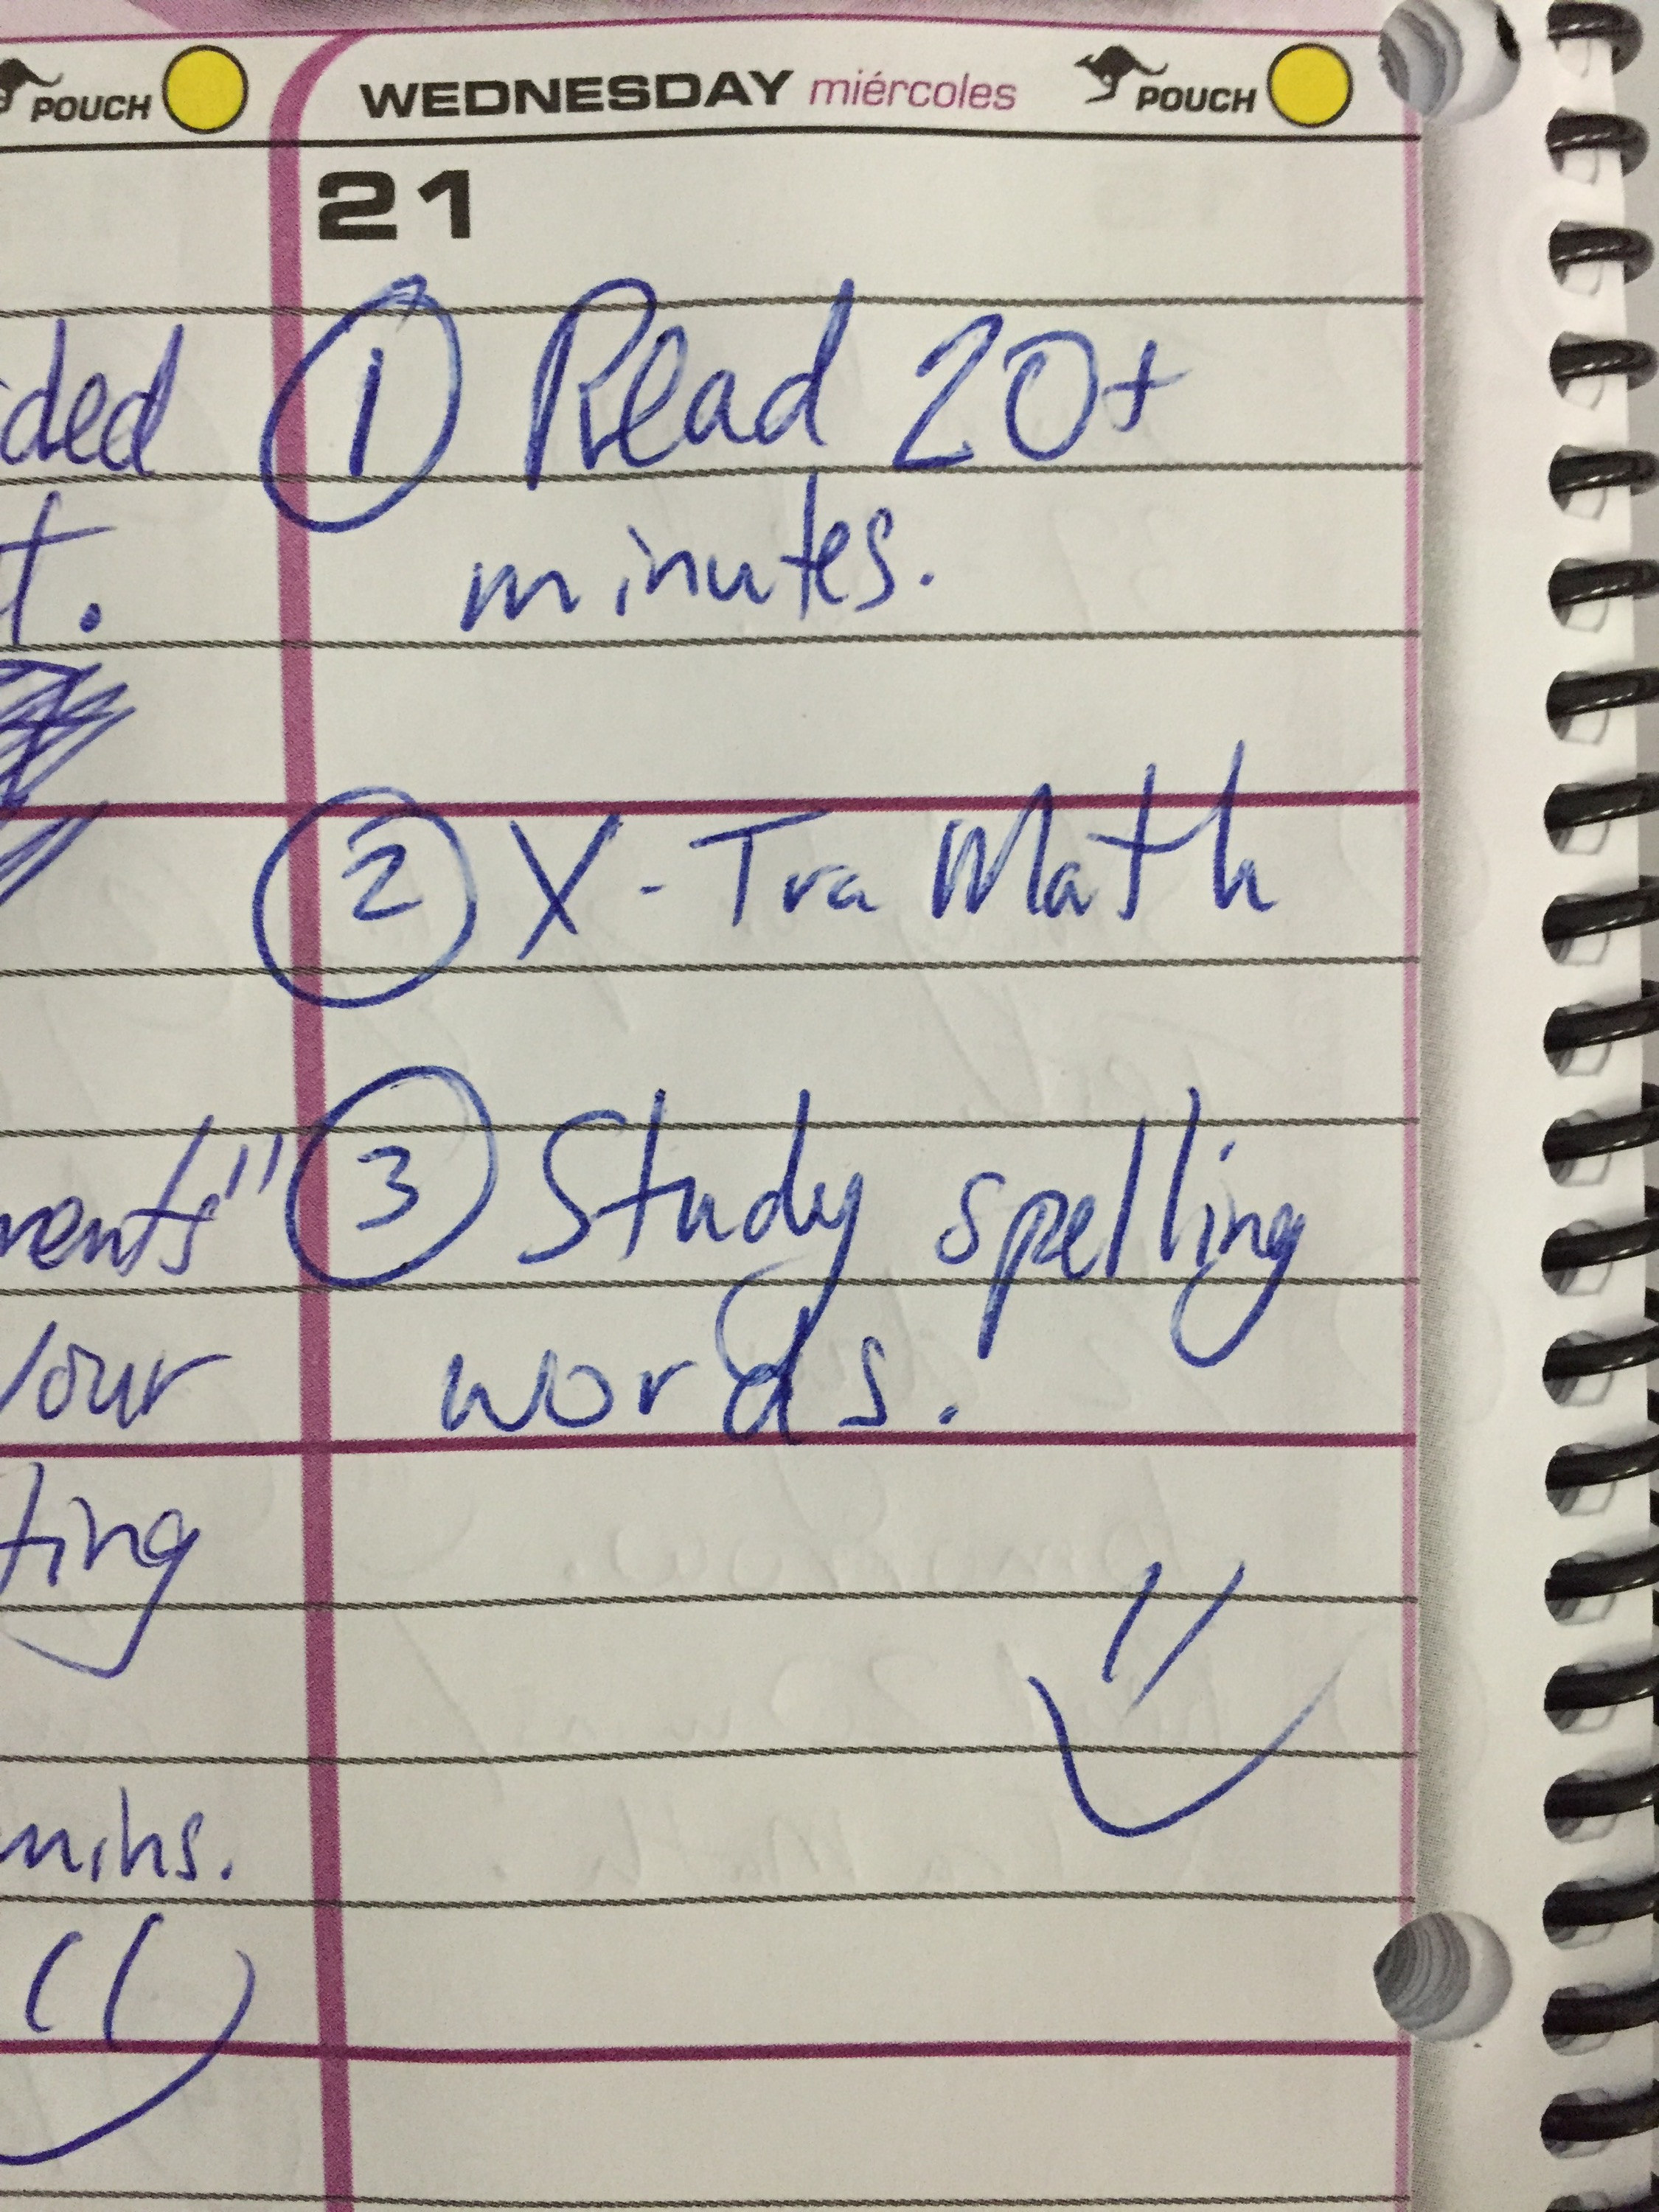 POUCH
WEDNESDAY miércoles POUCH
21
ded
t.
① Read 20+
minutes.
② X-Tra Math
③ Study spelling
words.
ments"
your
ting
mins.